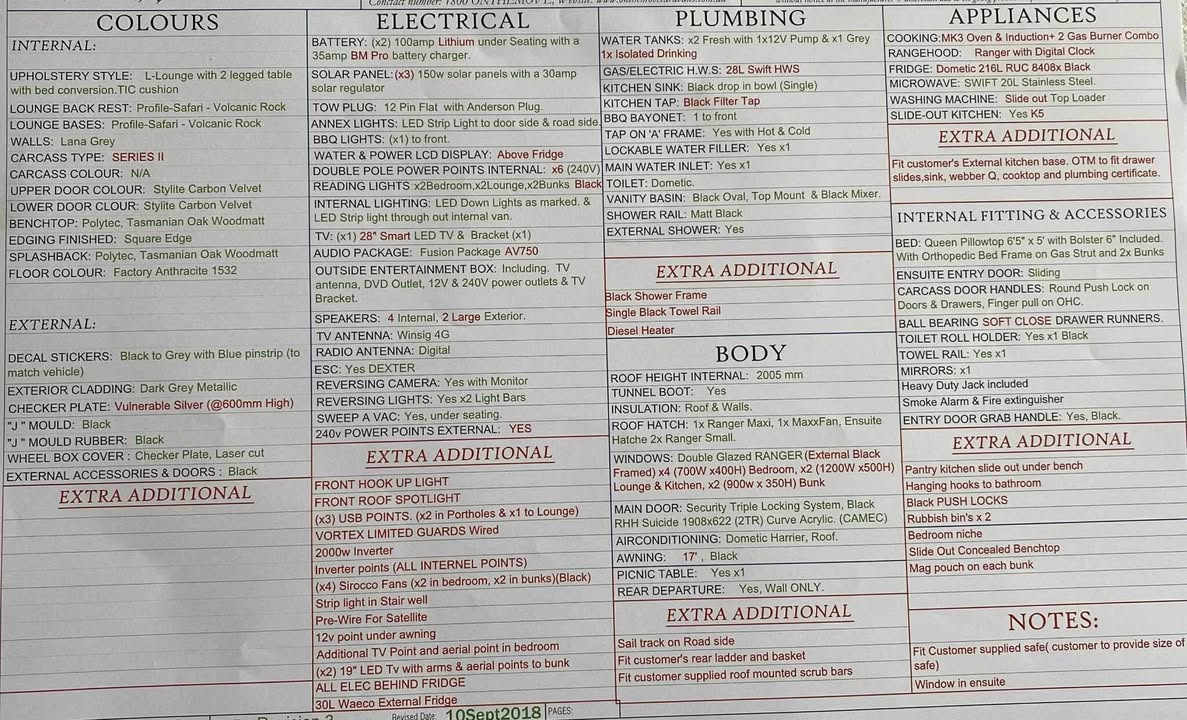 Contact number: 1800 ONTHEMOVE, Website: www.onthemovecaravans.com.au
COLOURS
INTERNAL:
UPHOLSTERY STYLE: L-Lounge with 2 legged table
with bed conversion.TIC cushion
LOUNGE BACK REST: Profile-Safari - Volcanic Rock
LOUNGE BASES: Profile-Safari - Volcanic Rock
WALLS: Lana Grey
CARCASS TYPE: SERIES II
CARCASS COLOUR: N/A
UPPER DOOR COLOUR: Stylite Carbon Velvet
LOWER DOOR CLOUR: Stylite Carbon Velvet
BENCHTOP: Polytec, Tasmanian Oak Woodmatt
EDGING FINISHED: Square Edge
SPLASHBACK: Polytec, Tasmanian Oak Woodmatt
FLOOR COLOUR: Factory Anthracite 1532
EXTERNAL:
DECAL STICKERS: Black to Grey with Blue pinstrip (to
match vehicle)
EXTERIOR CLADDING: Dark Grey Metallic
CHECKER PLATE: Vulnerable Silver (@600mm High)
"J " MOULD: Black
"J " MOULD RUBBER: Black
WHEEL BOX COVER : Checker Plate, Laser cut
EXTERNAL ACCESSORIES & DOORS : Black
EXTRA ADDITIONAL
ELECTRICAL
BATTERY: (x2) 100amp Lithium under Seating with a
35amp BM Pro battery charger.
SOLAR PANEL:(x3) 150w solar panels with a 30amp
solar regulator
TOW PLUG: 12 Pin Flat with Anderson Plug.
ANNEX LIGHTS: LED Strip Light to door side & road side.
BBQ LIGHTS: (x1) to front.
WATER & POWER LCD DISPLAY: Above Fridge
DOUBLE POLE POWER POINTS INTERNAL: x6 (240V)
READING LIGHTS x2Bedroom,x2Lounge,x2Bunks Black
INTERNAL LIGHTING: LED Down Lights as marked. &
LED Strip light through out internal van.
TV: (x1) 28" Smart LED TV & Bracket (x1)
AUDIO PACKAGE: Fusion Package AV750
OUTSIDE ENTERTAINMENT BOX: Including. TV
antenna, DVD Outlet, 12V & 240V power outlets & TV
Bracket.
SPEAKERS: 4 Internal, 2 Large Exterior.
TV ANTENNA: Winsig 4G
RADIO ANTENNA: Digital
ESC: Yes DEXTER
REVERSING CAMERA: Yes with Monitor
REVERSING LIGHTS: Yes x2 Light Bars
SWEEP A VAC: Yes, under seating.
240v POWER POINTS EXTERNAL: YES
EXTRA ADDITIONAL
FRONT HOOK UP LIGHT
FRONT ROOF SPOTLIGHT
(x3) USB POINTS. (x2 in Portholes & x1 to Lounge)
VORTEX LIMITED GUARDS Wired
2000w Inverter
Inverter points (ALL INTERNEL POINTS)
(x4) Sirocco Fans (x2 in bedroom, x2 in bunks)(Black)
Strip light in Stair well
Pre-Wire For Satellite
12v point under awning
Additional TV Point and aerial point in bedroom
(x2) 19" LED Tv with arms & aerial points to bunk
ALL ELEC BEHIND FRIDGE
30L Waeco External Fridge
PLUMBING
WATER TANKS: x2 Fresh with 1x12V Pump & x1 Grey
1x Isolated Drinking
GAS/ELECTRIC H.W.S: 28L Swift HWS
KITCHEN SINK: Black drop in bowl (Single)
KITCHEN TAP: Black Filter Tap
BBQ BAYONET: 1 to front
TAP ON 'A' FRAME: Yes with Hot & Cold
LOCKABLE WATER FILLER: Yes x1
MAIN WATER INLET: Yes x1
TOILET: Dometic.
VANITY BASIN: Black Oval, Top Mount & Black Mixer.
SHOWER RAIL: Matt Black
EXTERNAL SHOWER: Yes
EXTRA ADDITIONAL
Black Shower Frame
Single Black Towel Rail
Diesel Heater
BODY
ROOF HEIGHT INTERNAL: 2005 mm
TUNNEL BOOT: Yes
INSULATION: Roof & Walls.
ROOF HATCH: 1x Ranger Maxi, 1x MaxxFan, Ensuite
Hatche 2x Ranger Small.
WINDOWS: Double Glazed RANGER(External Black
Framed) x4 (700W x400H) Bedroom, x2 (1200W x500H)
Lounge & Kitchen, x2 (900w x 350H) Bunk
MAIN DOOR: Security Triple Locking System, Black
RHH Suicide 1908x622 (2TR) Curve Acrylic. (CAMEC)
AIRCONDITIONING: Dometic Harrier, Roof.
AWNING: 17' , Black
PICNIC TABLE: Yes x1
REAR DEPARTURE: Yes, Wall ONLY.
EXTRA ADDITIONAL
Sail track on Road side
Fit customer's rear ladder and basket
Fit customer supplied roof mounted scrub bars
APPLIANCES
COOKING:MK3 Oven & Induction+ 2 Gas Burner Combo
RANGEHOOD: Ranger with Digital Clock
FRIDGE: Dometic 216L RUC 8408x Black
MICROWAVE: SWIFT 20L Stainless Steel.
WASHING MACHINE: Slide out Top Loader
SLIDE-OUT KITCHEN: Yes K5
EXTRA ADDITIONAL
Fit customer's External kitchen base. OTM to fit drawer
slides,sink, webber Q, cooktop and plumbing certificate.
INTERNAL FITTING & ACCESSORIES
BED: Queen Pillowtop 6'5" x 5' with Bolster 6" Included.
With Orthopedic Bed Frame on Gas Strut and 2x Bunks
ENSUITE ENTRY DOOR: Sliding
CARCASS DOOR HANDLES: Round Push Lock on
Doors & Drawers, Finger pull on OHC.
BALL BEARING SOFT CLOSE DRAWER RUNNERS.
TOILET ROLL HOLDER: Yes x1 Black
TOWEL RAIL: Yes x1
MIRRORS: x1
Heavy Duty Jack included
Smoke Alarm & Fire extinguisher
ENTRY DOOR GRAB HANDLE: Yes, Black.
EXTRA ADDITIONAL
Pantry kitchen slide out under bench
Hanging hooks to bathroom
Black PUSH LOCKS
Rubbish bin's x 2
Bedroom niche
Slide Out Concealed Benchtop
Mag pouch on each bunk
NOTES:
Fit Customer supplied safe( customer to provide size of
safe)
Window in ensuite
Revised Date: 10Sept2018 PAGES: